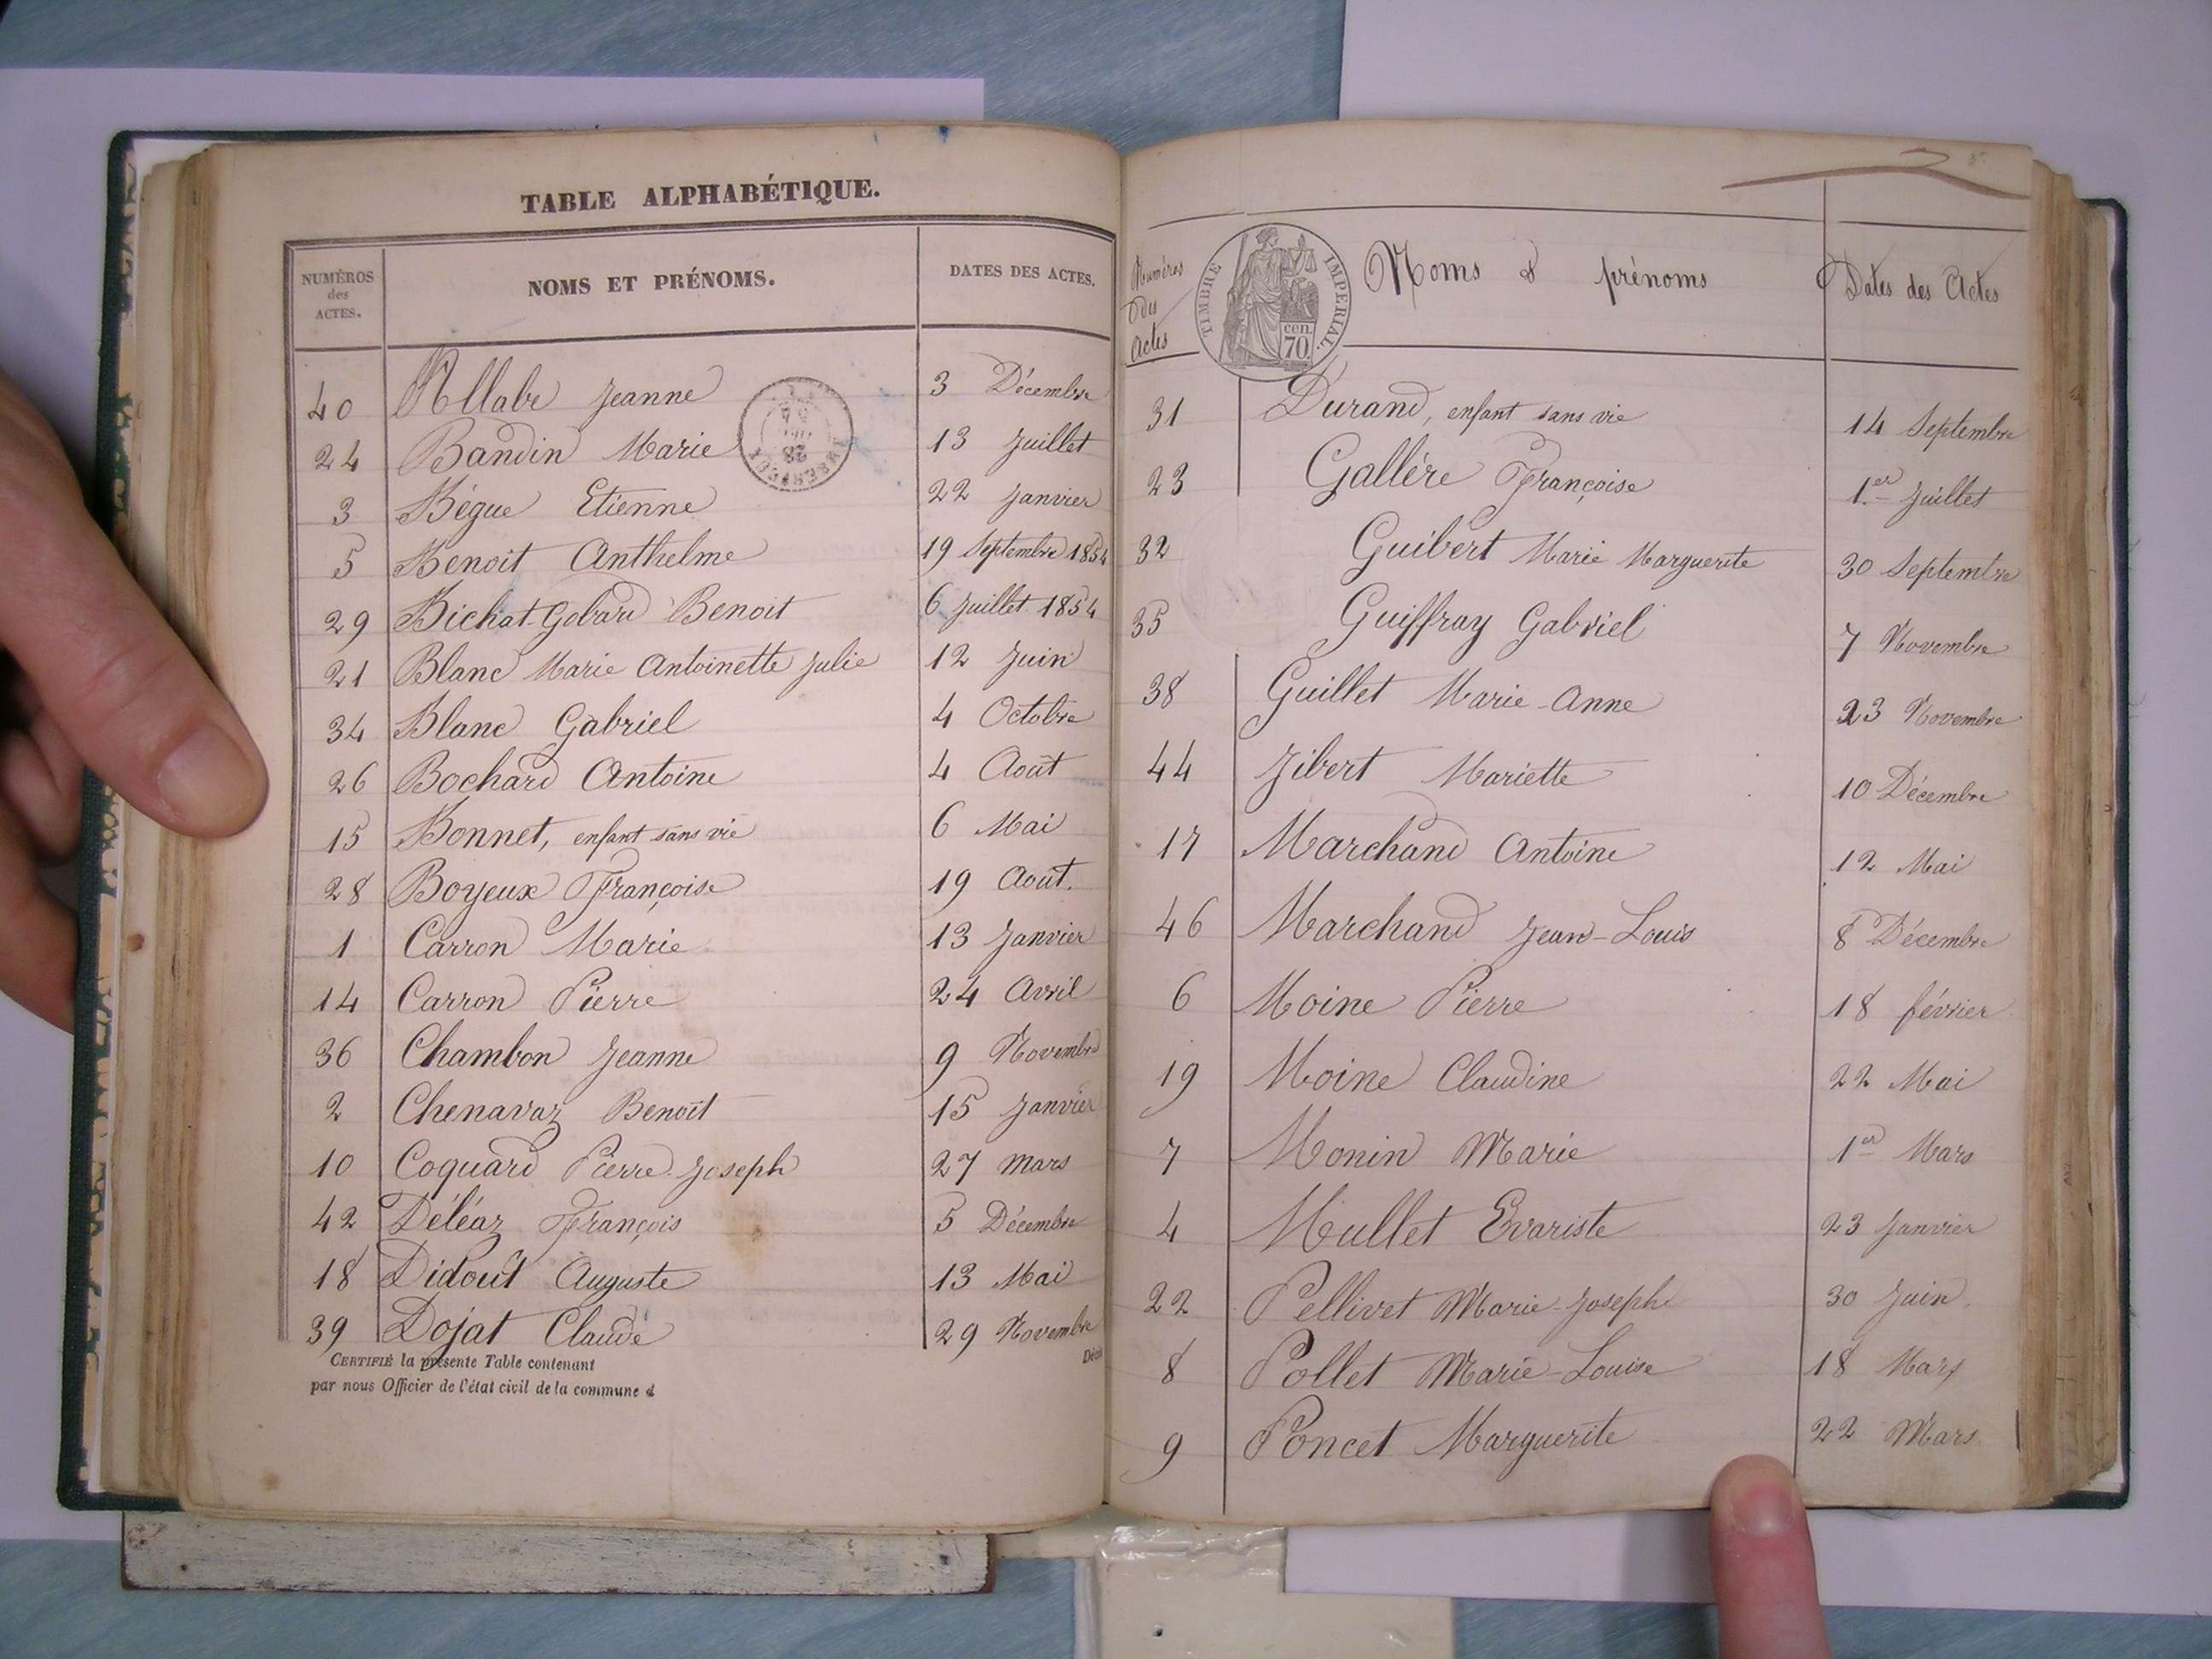 TABLE ALPHABÉTIQUE.
NUMÉROS des ACTES. NOMS ET PRÉNOMS. DATES DES ACTES.
40 Allabe Jeanne 3 Décembre
24 Bandin Marie 13 Juillet
3 Bégue Etienne 22 Janvier
5 Benoit Anthelme 19 Septembre 1854
29 Bichat-Gobard Benoit 6 Juillet 1854
21 Blanc Marie Antoinette Julie 12 Juin
34 Blanc Gabriel 4 Octobre
26 Bochard Antoine 4 Août
15 Bonnet, enfant sans vie 6 Mai
28 Boyeux Françoise 19 Août.
1 Carron Marie 13 Janvier
14 Carron Pierre 24 Avril
36 Chambon Jeanne 9 Novembre
2 Chenavaz Benoit 15 Janvier
10 Coquard Pierre-Joseph 27 mars
42 Déléaz François 5 Décembre
18 Didout Auguste 13 Mai
39 Dojat Claude 29 Novembre
CERTIFIÉ la présente Table contenant
par nous Officier de l'état civil de la commune d
Numéros des Actes Noms & prénoms Dates des Actes
TIMBRE IMPÉRIAL.
cen.
70
31 Durand, enfant sans vie 14 Septembre
23 Gallére Françoise 1er Juillet
32 Guibert Marie Marguerite 30 Septembre
35 Guiffray Gabriel 7 Novembre
38 Guillet Marie-Anne 23 Novembre
44 Jibert Mariette 10 Décembre
17 Marchand Antoine 12 Mai
46 Marchand Jean-Louis 8 Décembre
6 Moine Pierre 18 février
19 Moine Claudine 22 Mai
7 Monin Marie 1er Mars
4 Mullet Evariste 23 Janvier
22 Pellivet Marie-Joseph 30 Juin
8 Pollet Marie-Louise 18 Mars
9 Poncet Marguerite 22 Mars